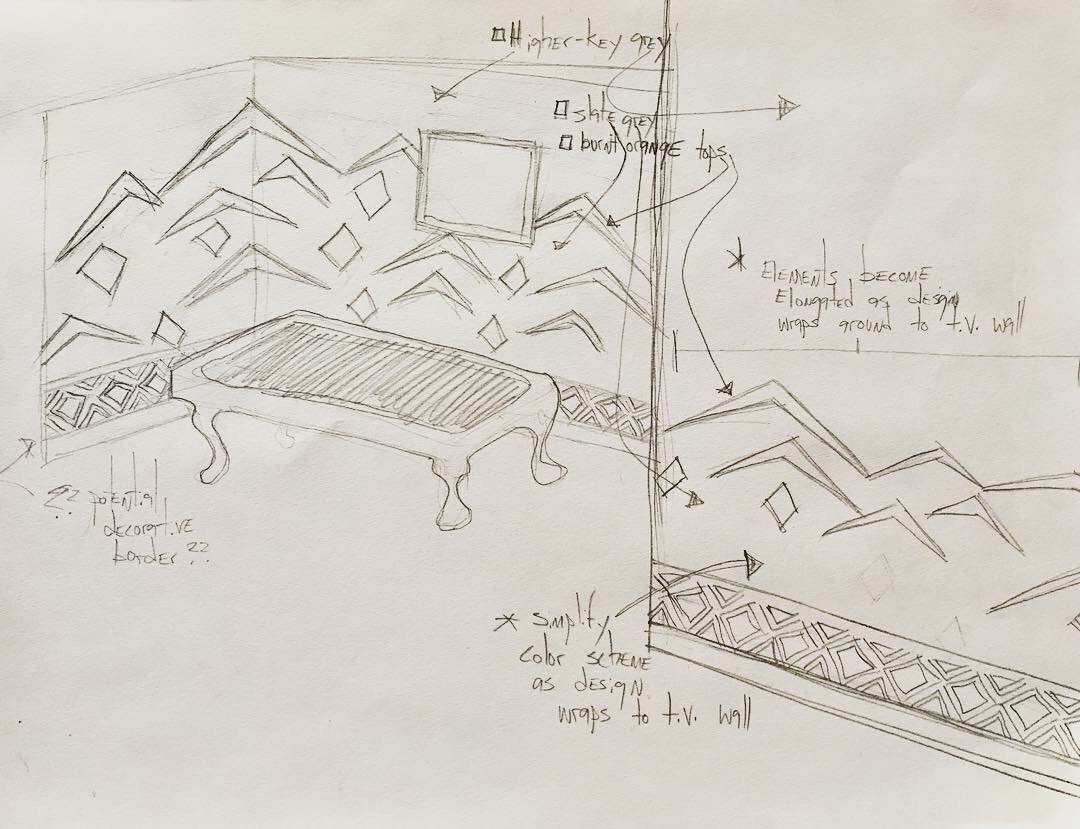 Higher-key grey
slate grey
burnt orange tops
* Elements become
Elongated as design
wraps around to t.v. wall
?? potential
decorative
border??
* simplify
color scheme
as design
wraps to t.v. wall